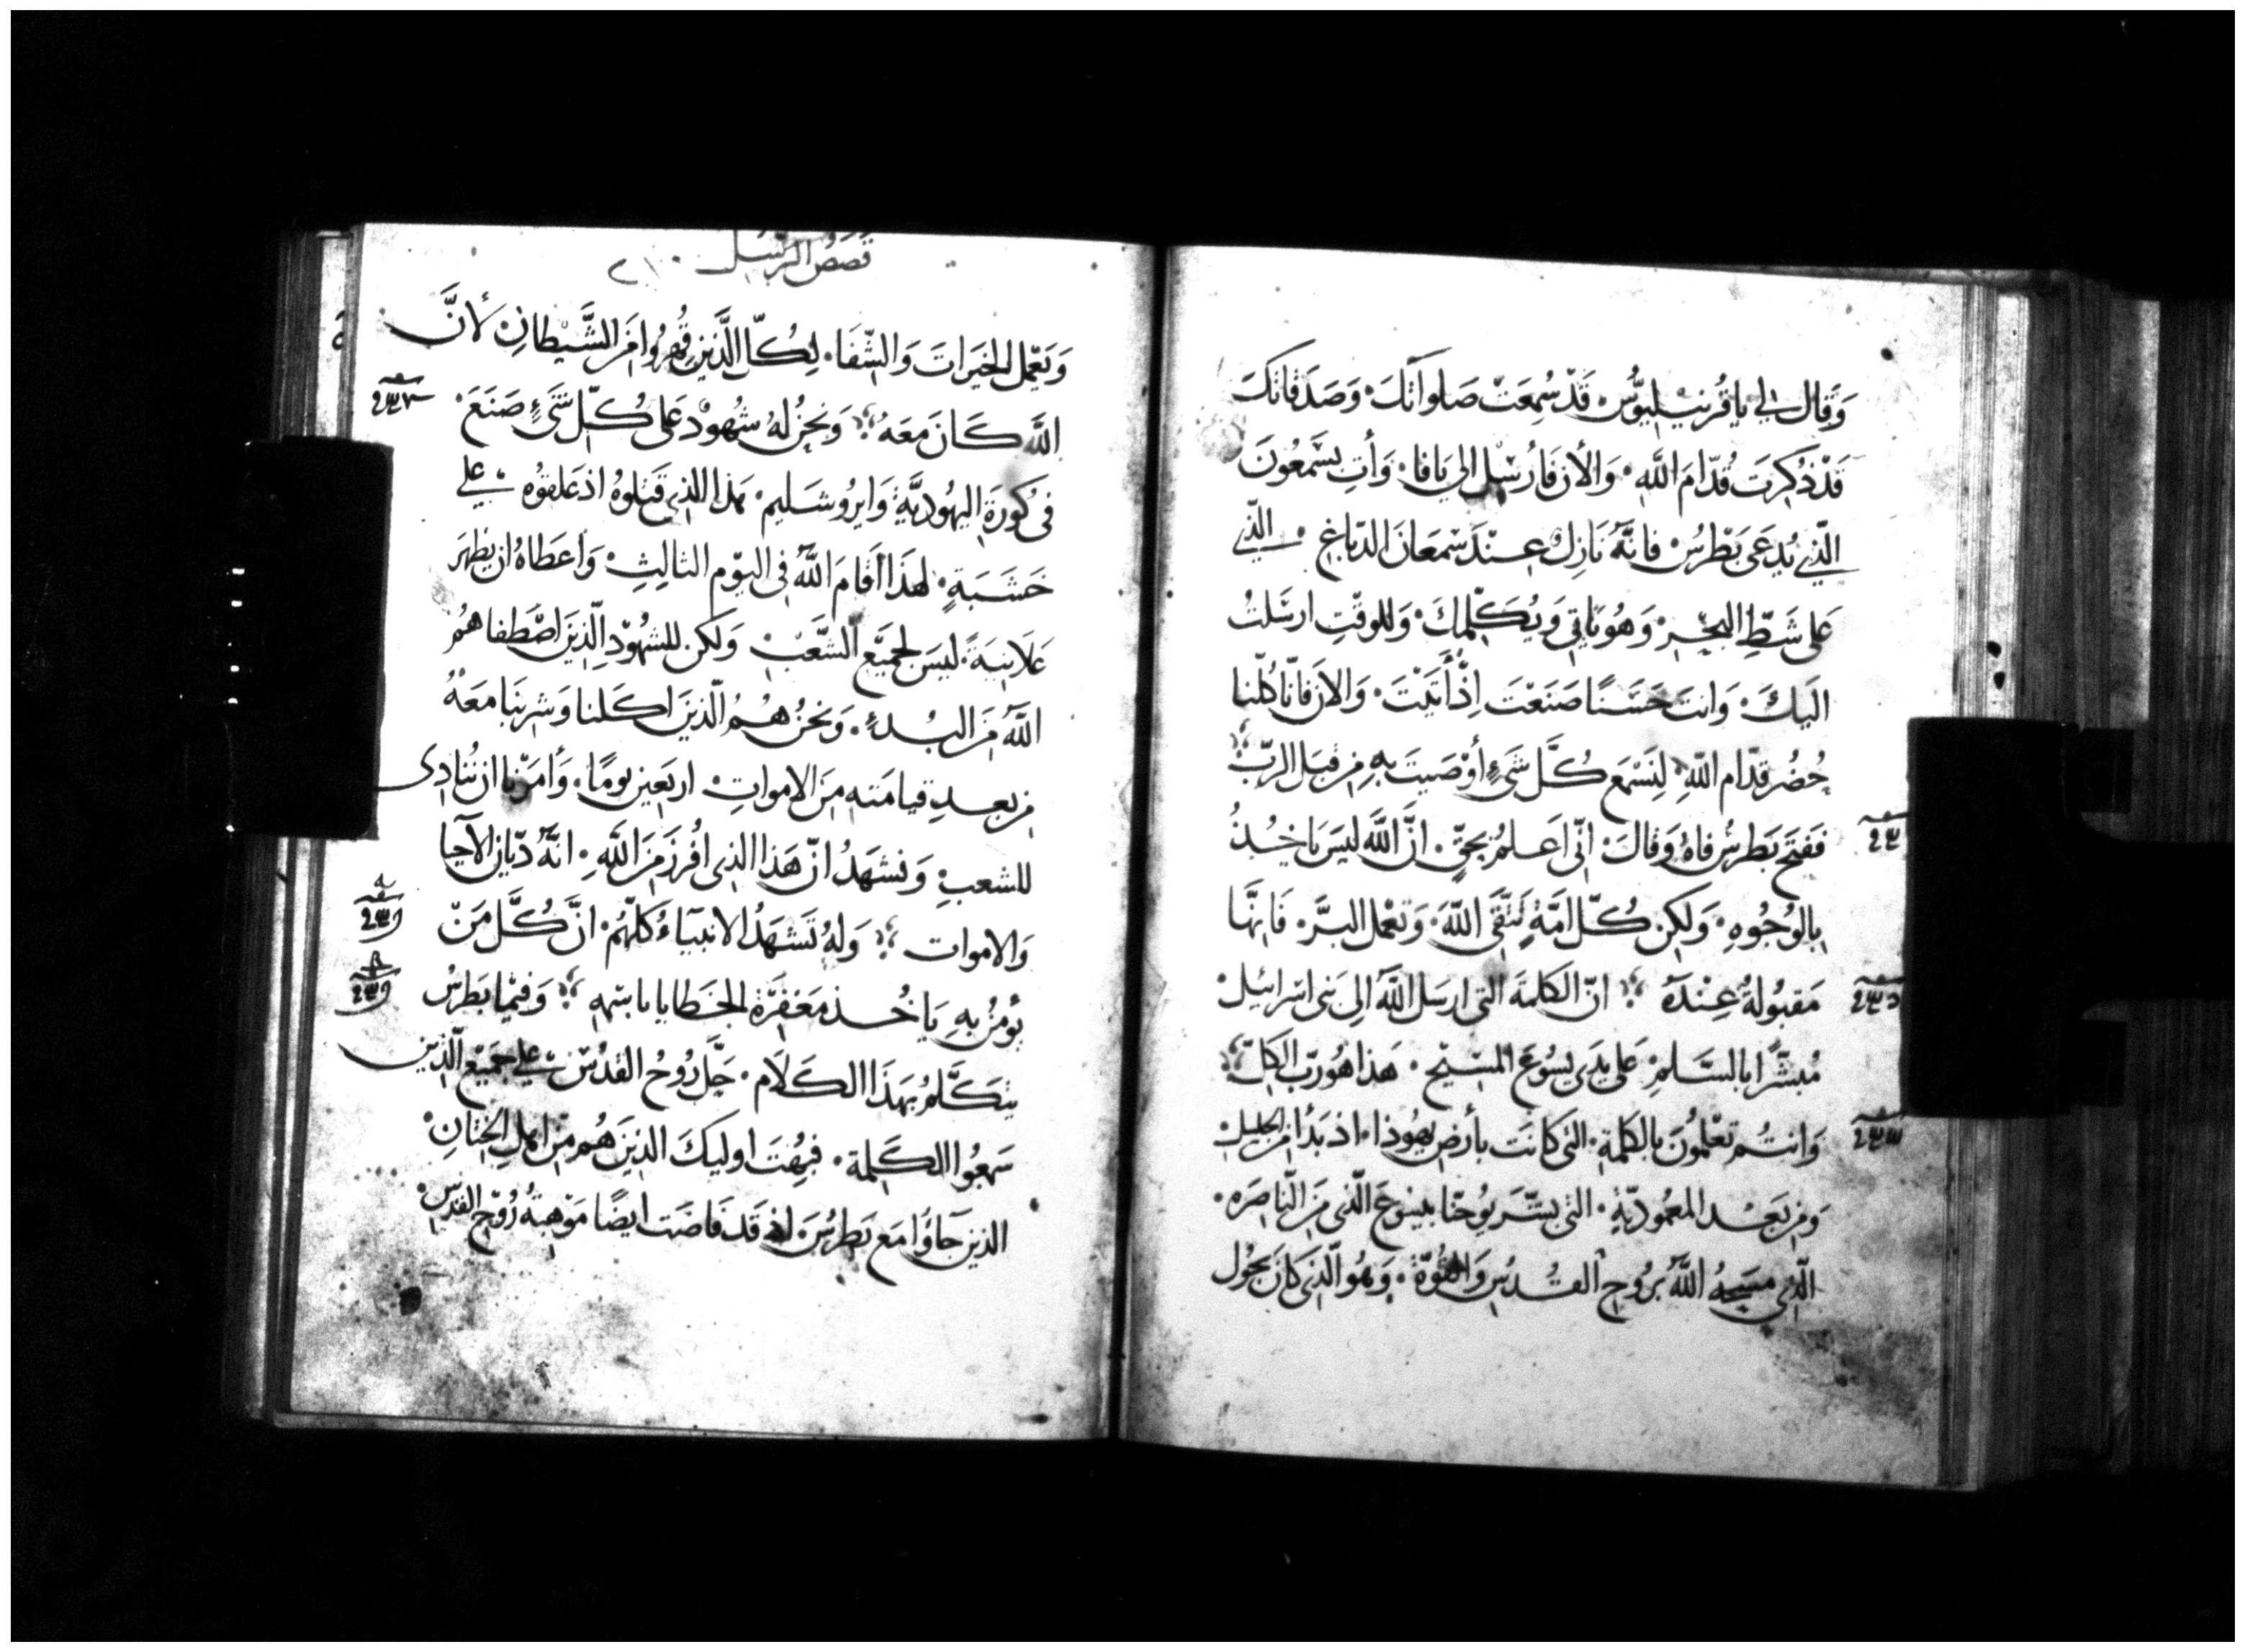 وَقال لي ياقُرنيْليوُس۰ قَدْ سُمِعَتْ صَلواتَكَ۰ وَصَدَقاتكَ
قَدْ ذُكِرَت قُدّامَ اللَّهِ۰ وَالأن فَأرُسْل الى يَافا۰ وَأتِ بسَّمعُونَ
الّذي يُدعَى بَطْرسُ۰ فانّهُ نَازِلٌ عِنْدَ سْمعَانَ الدّباغِ۰ الّذي
عَلى شَطِّ البَحْرِ۰ وَهُوَ يَاتي وَيُكَلِّمكَ۰ وَللوقْتِ ارسَلتُ
الَيكَ۰ وَانتَ حَسَنًا صَنَعْتَ اِذْ أتَيْتَ۰ وَالان فَانّا كُلّنا
حُضُر قدّام اللّهِ۰ لِنَسْمَع كُلَّ شَىءٍ أوْصَيتَ بهِ مِن قبَل الرّبّ
فَفتَح بَطرسُ فاهُ وَقالَ۰ انّى اعَلمُ بحَقٍّ۰ انَّ اللَّهَ ليسَ يَاخُذُ
بِالوُجُوهِ۰ وَلكِن كُلّ امَّةٍ تَتَّقى اللّهَ۰ وَتعْمل البرَّ۰ فَانهَّا
مَقبُولةٌ عِنْدَهُ ؛ انّ الكَلمَةَ التى ارسَل اللَّهُ الى بَنى اسْرائيل۰
مُبشّرًا بالسَّلمِ۰ عَلى يَدَى يسُوعَ المسَيح۰ هَذا هُو رَبّ الكلّ
وَانتُم تعْلمُونَ بالكلمَةِ۰ التى كانَت بأرضِ يهُوذا۰ اذ بَدَأ مِن الجليل۰
وَمِن بَعْد المعمُوديّةِ۰ التى بشّرَ يُوحَنّا بيسُوعَ الّذى مِنَ النّاصرَه۰
الّذى مسَحهُ اللَّهُ برُوحِ القُدُسِ وَالقُوّة۰ وَهُو الّذى كانَ يجُول
قصَصُ الرّسُل ٢١٠
وَيَعْمل الخيَراتَ وَالشّفَا۰ لِكُلّ الَّذينَ قُهرُوا مِنَ الشَّيْطانِ۰ لأنَّ
اللَّه كَانَ معَهُ ؛ وَنحَنُ لهُ شُهُودْ عَلى كُلّ شَىءٍ صَنَعَ۰
فى كُورَة اليهُوديَّةِ وَايرُوشَليم۰ هَذا الذى قَتلوهُ اذ عَلقوُه عَلي
خَشَبَةٍ۰ لهذَا أقامَ اللَّهُ فى اليَوْم الثالِثِ۰ وَأعطَاهُ ان يَظهَر
عَلَانيَةً۰ ليسَ لجميْع الشَّعْب۰ وَلكن للشهُوْدِ الّذِينَ اصْطَفاهُم
اللَّهُ مِنَ البُدءِ۰ وَنحنُ هُمُ الّذينَ اكلنا وَشرِبنَا مَعهُ
مِن بعدِ قيامَته مِنَ الاموَاتِ۰ اربَعين يومًا۰ وَأمَرَنا ان نُنادِى
للشعبِ۰ وَنشهَدُ انّ هَذا الذى افُرزَ مِنَ اللَّهِ۰ انّهُ ديّان الآحيا
وَالاموات ؛ وَلهُ تَشهَدُ الانبيَاءُ كلّهُم۰ انَّ كُلَّ مَنْ
يُومنُ بهِ يَاخُذ مَغفرَة الخَطايا باسْمهِ ؛ وَفيمْا بَطرسُ
يتكَلّمُ بهذَا الكَلَام۰ حَلّ رُوحُ القدُسِ علي جَميْع الّذين
سَمعُوا الكَلِمة۰ فبُهتَ اوليكَ الذِينَ هُم مِن اهلِ الختَانِ۰
الذينَ جآؤا مَع بَطرسُ۰ اذ قَد فَاضَت ايضًا مَوْهبَةُ رُوْح القدُسِ۰